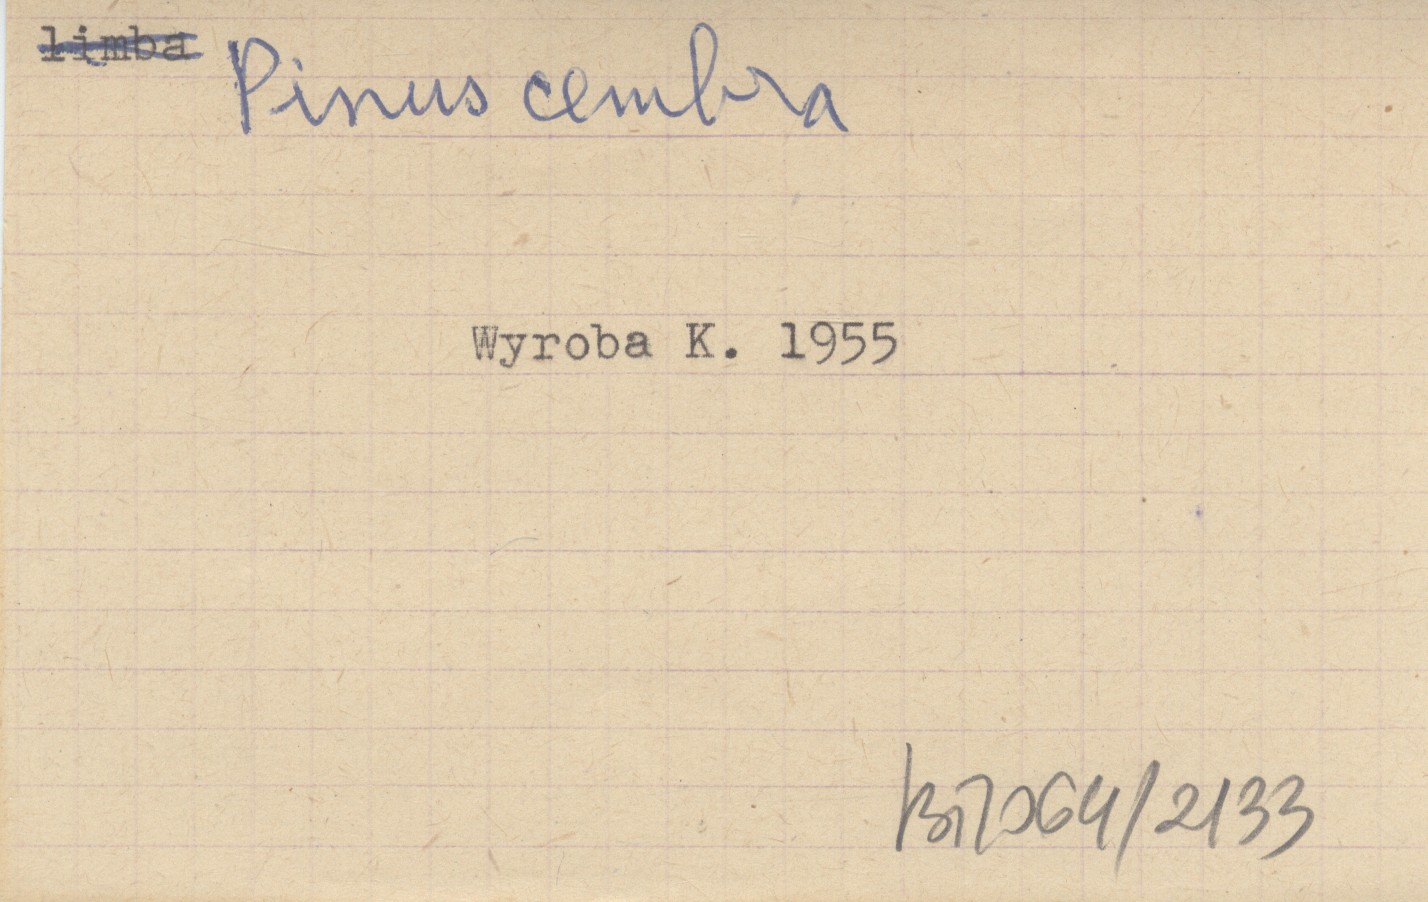 limba Pinus cembra
Wyroba K. 1955
/2133